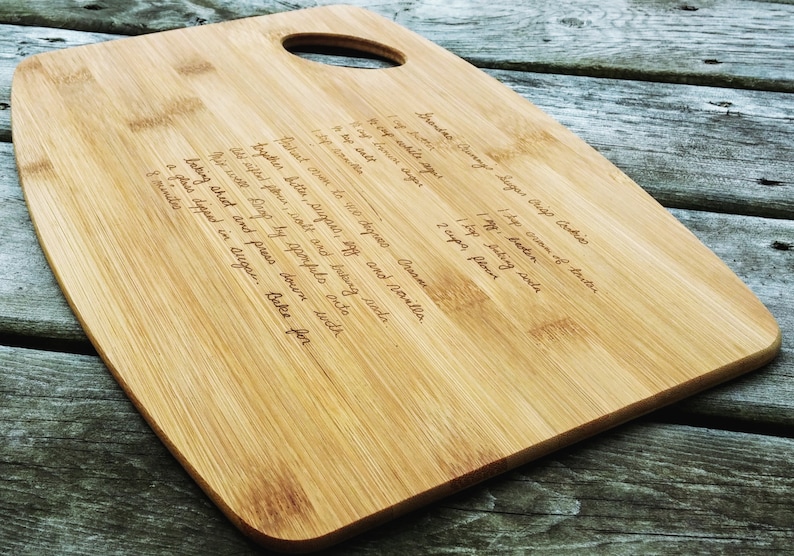 Grandma Dunning's Sugar Crisp Cookies
1 cup butter
1 tsp cream of tartar
1/2 cup white sugar
1 egg beaten
1/2 cup brown sugar
1 tsp baking soda
1/2 tsp salt
2 cups flour
1 tsp vanilla
Preheat oven to 400 degrees Cream
together butter, sugars, egg and vanilla.
Add sifted flour, salt and baking soda.
Mix well. Drop by spoonfuls onto
baking sheet and press down with
a glass dipped in sugar. Bake for
8 minutes